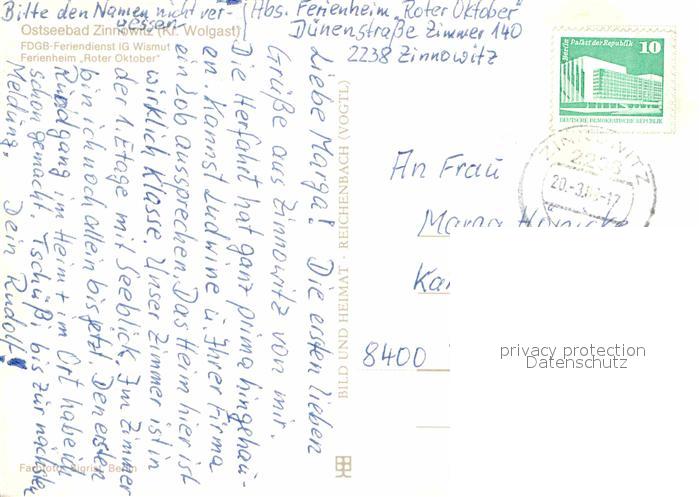 Bitte den Namen nicht ver-
gessen
Abs. Ferienheim „Roter Oktober"
Dünenstraße Zimmer 140
2238 Zinnowitz
Ostseebad Zinnowitz (Kr. Wolgast)
FDGB-Feriendienst IG Wismut
Ferienheim „Roter Oktober"
Liebe Marga! Die ersten lieben
Grüße aus Zinnowitz von mir.
Die Herfahrt hat ganz prima hingehau-
en. Kannst Ludwine u. Ihrer Firma
ein Lob aussprechen. Das Heim hier ist
wirklich Klasse. Unser Zimmer ist in
der 1. Etage mit Seeblick. Im Zimmer
bin ich noch allein bis jetzt. Den ersten
Rundgang im Heim + im Ort habe ich
schon gemacht. Tschüß! bis zur nächsten
Meldung. Dein Rudolf
BILD UND HEIMAT · REICHENBACH (VOGTL)
Berlin Palast der Republik 10
DEUTSCHE DEMOKRATISCHE REPUBLIK
ZINNOWITZ
2238
An Frau
Marga
8400
privacy protection
Datenschutz